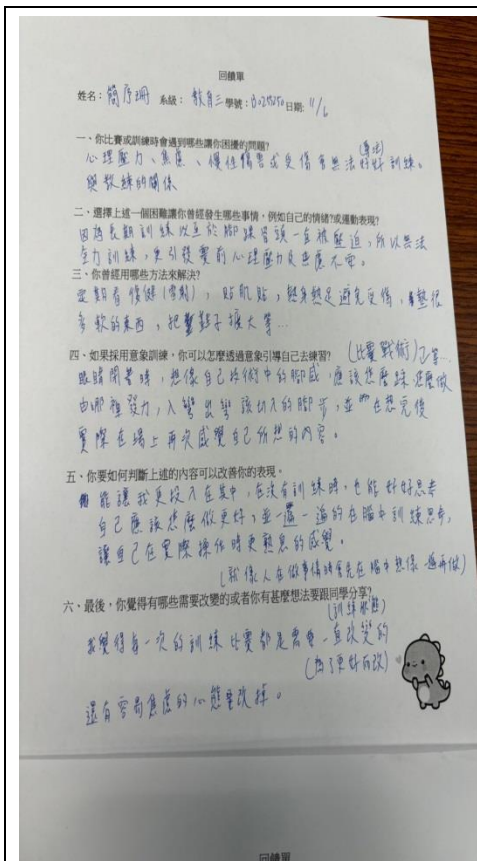 回饋單
姓名：簡序珊 系級：教育三 學號： 日期：11/6
一、你比賽或訓練時會遇到哪些讓你困擾的問題?
心理壓力、焦慮、慢性傷害或受傷會無法(專注)好好訓練。
與教練的關係
二、選擇上述一個困難讓你曾經發生哪些事情，例如自己的情緒?或運動表現?
因為長期訓練以至於腳踝骨頭一直被壓迫，所以無法
全力訓練，更引發賽前心理壓力及焦慮不安。
三、你曾經用哪些方法來解決?
定期看復健(電動)，貼肌貼，熱身熱足避免受傷，墊很
多軟的東西，把鞋子擴大等…
四、如果採用意象訓練，你可以怎麼透過意象引導自己去練習? (比賽戰術)等…
眼睛閉著時，想像自己技術中的腳感，應該怎麼踩 怎麼做
由哪裡發力，入彎出彎該切入的腳步，並在想完後
實際在場上再次感覺自己所想的內容。
五、你要如何判斷上述的內容可以改善你的表現。
能讓我更投入在其中，在沒有訓練時，也能好好思考
自己應該怎麼做更好，並一遍一遍的在腦中訓練思考，
讓自己在實際操作時更熟悉的感覺。
(就像人在做事情時會先在腦中想像一遍再做)
六、最後，你覺得有哪些需要改變的或者你有甚麼想法要跟同學分享?
(訓練狀態)
我覺得每一次的訓練比賽都是需要一直改變的
(為了更好而改)
還有容易焦慮的心態要改掉。
回饋單